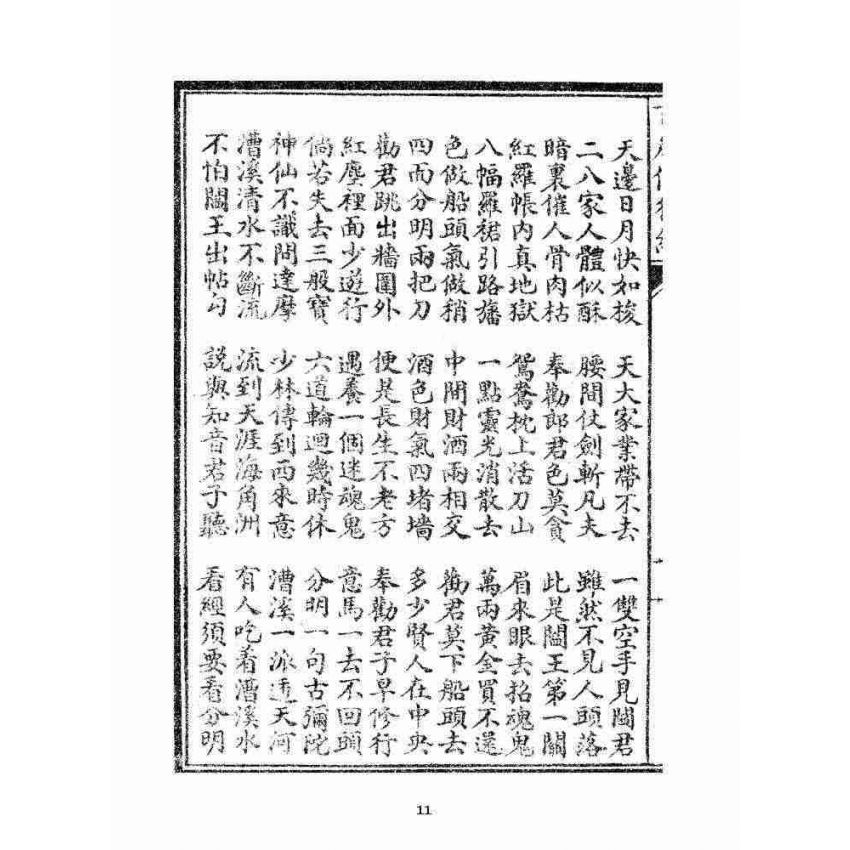 天邊日月快如梭　天大家業帶不去　一雙空手見閻君
二八家人體似酥　腰間仗劍斬凡夫　雖然不見人頭落
暗裏催人骨肉枯　奉勸郎君色莫貪　此是閻王第一關
紅羅帳內真地獄　鴛鴦枕上活刀山　眉來眼去招魂鬼
八幅羅裙引路旛　一點靈光消散去　萬兩黃金買不還
色做船頭氣做稍　中間財酒兩相交　勸君莫下船頭去
四面分明兩把刀　酒色財氣四堵墻　多少賢人在中央
勸君跳出牆圍外　便是長生不老方　奉勸君子早修行
紅塵裡面少遊行　遇養一個迷魂鬼　意馬一去不回頭
倘若失去三般寶　六道輪迴幾時休　分明一句古彌陀
神仙不識問達摩　少林傳到西來意　漕溪一派透天河
漕溪清水不斷流　流到天涯海角洲　有人吃着漕溪水
不怕閻王出帖勾　説與知音君子聽　看經須要看分明
11